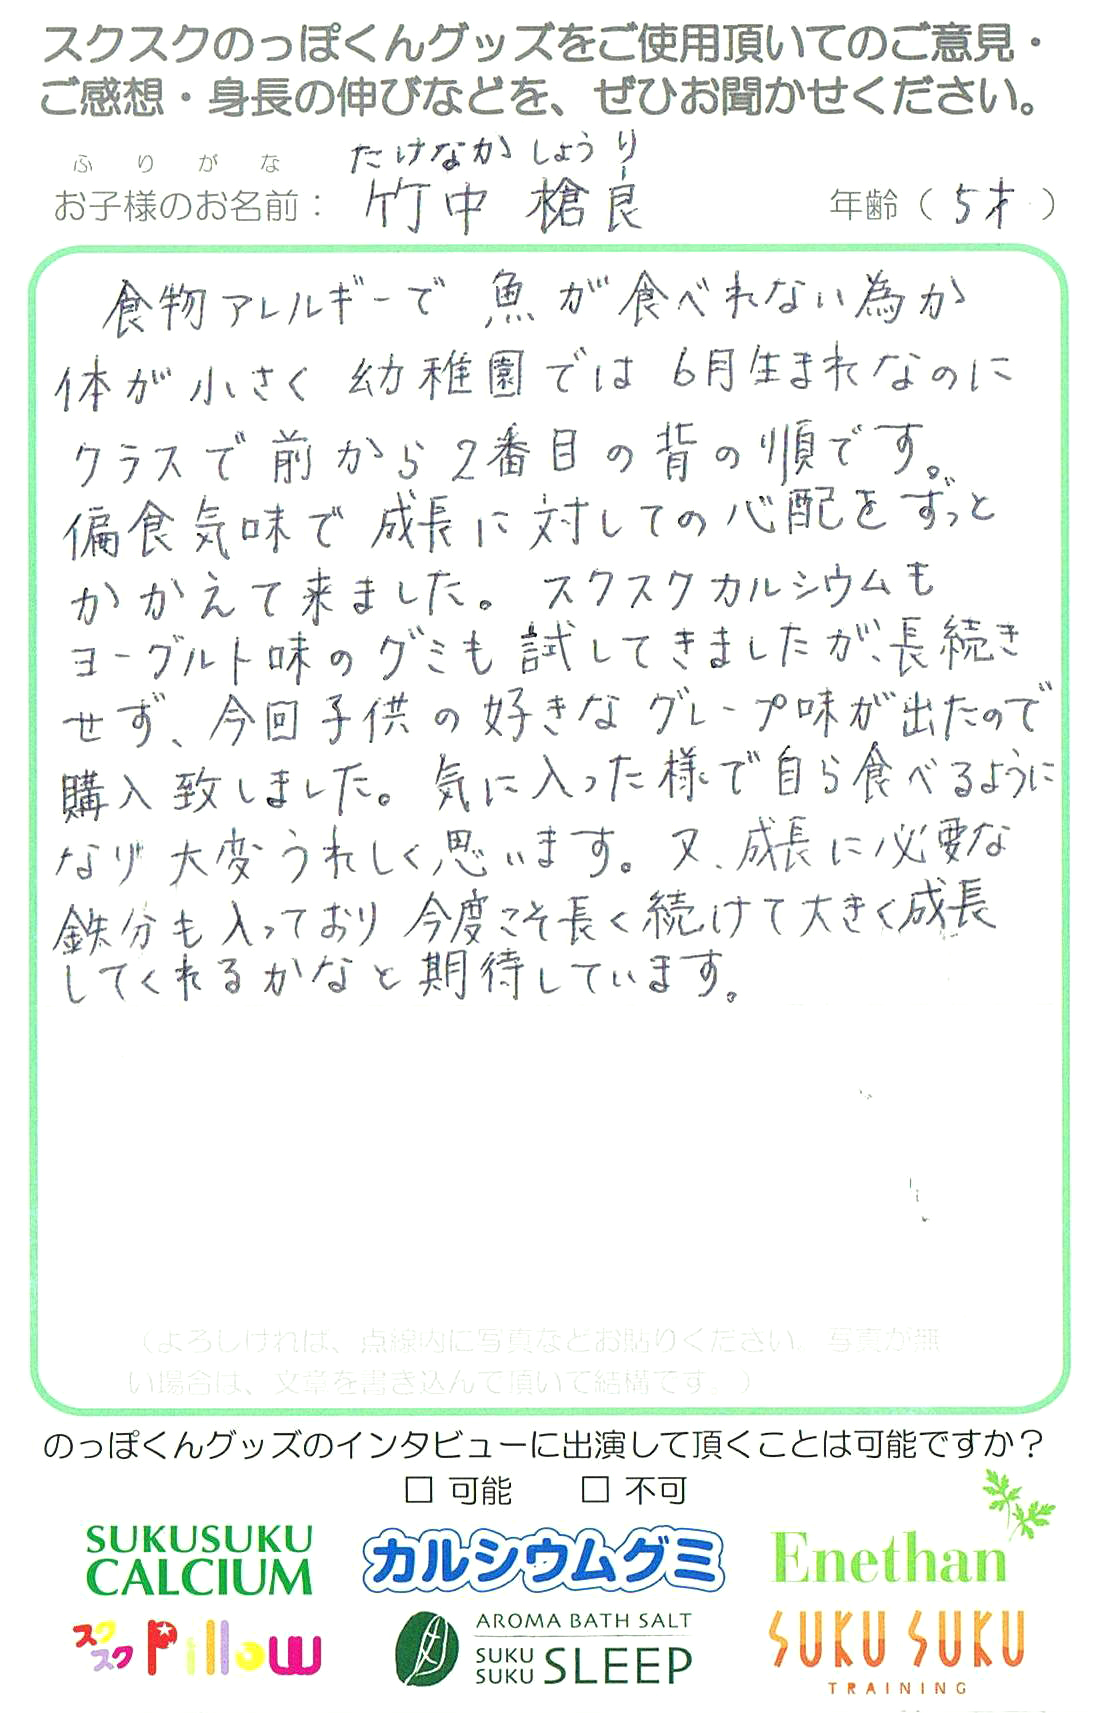 スクスクのっぽくんグッズをご使用頂いてのご意見・
ご感想・身長の伸びなどを、ぜひお聞かせください。
ふりがな たけなか しょうり
お子様のお名前： 竹中 槍良 年齢（5才）
食物アレルギーで 魚が食べれない為か
体が小さく 幼稚園では 6月生まれなのに
クラスで前から2番目の背の順です。
偏食気味で成長に対しての心配をずっと
かかえて来ました。スクスクカルシウムも
ヨーグルト味のグミも試してきましたが、長続き
せず、今回子供の好きなグレープ味が出たので
購入致しました。気に入った様で自ら食べるように
なり 大変うれしく思います。又、成長に必要な
鉄分も入っており 今度こそ長く続けて大きく成長
してくれるかなと期待しています。
（よろしければ、点線内に写真などお貼りください。写真が無
い場合は、文章を書き込んで頂いて結構です。）
のっぽくんグッズのインタビューに出演して頂くことは可能ですか？
□ 可能 □ 不可
SUKUSUKU
CALCIUM
カルシウムグミ
Enethan
スクスク Pillow
AROMA BATH SALT
SUKU SUKU SLEEP
SUKU SUKU
TRAINING